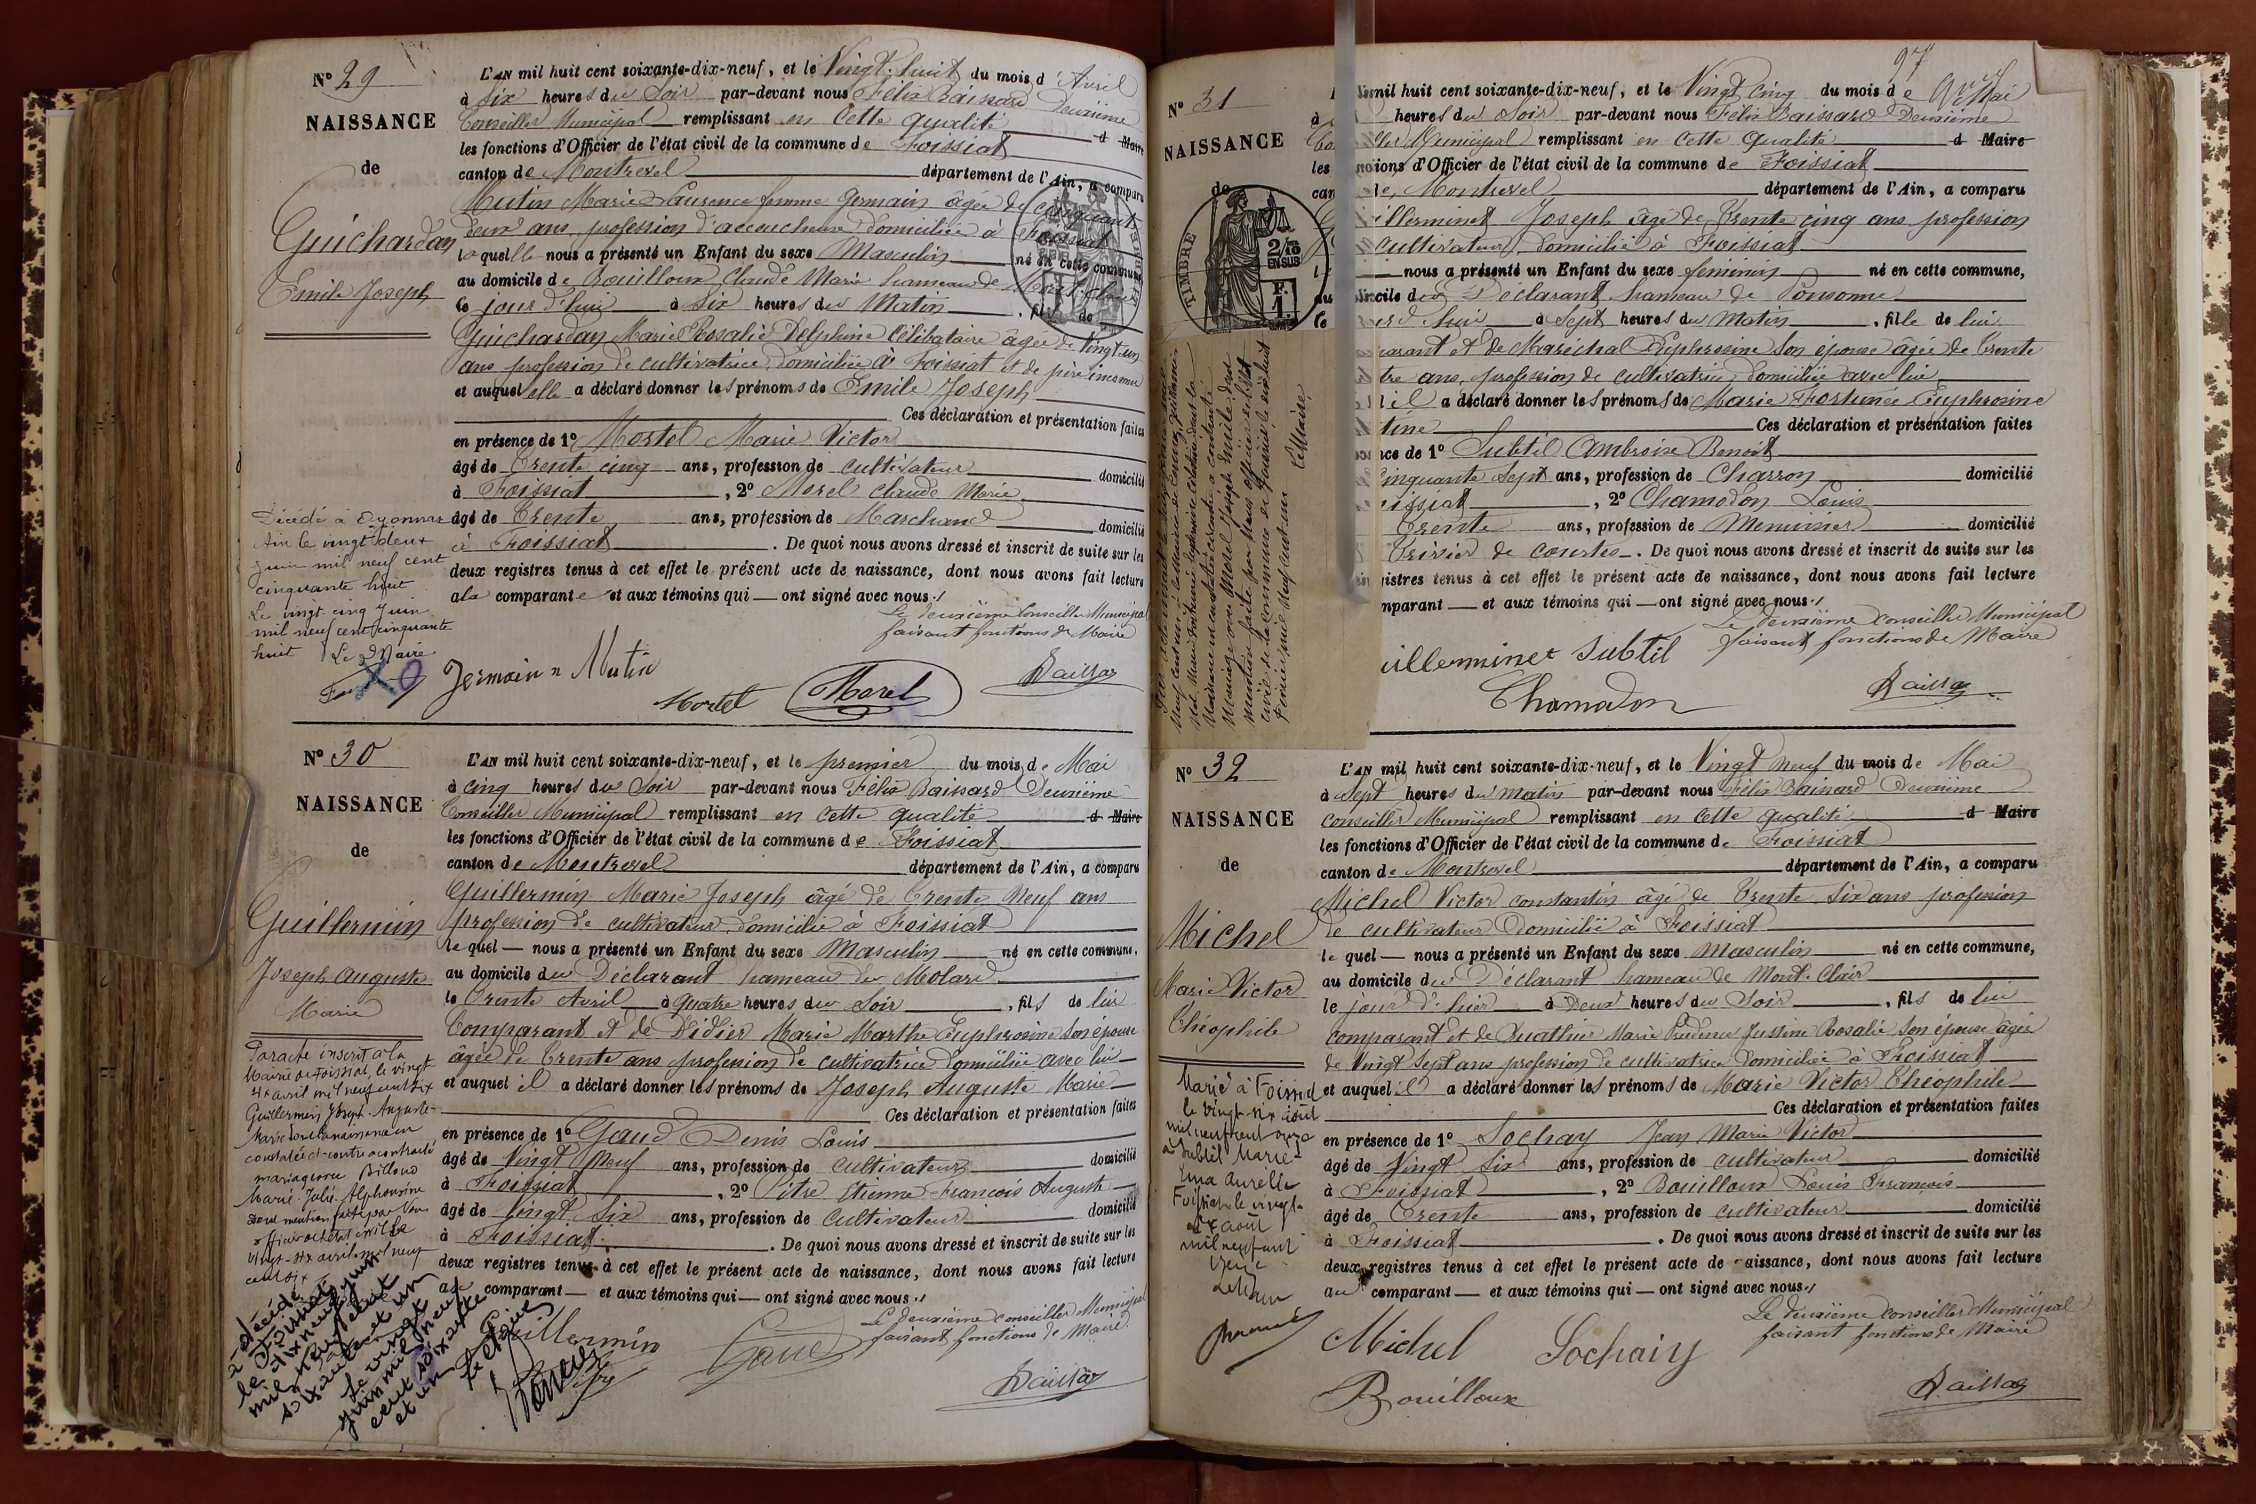 N° 29
NAISSANCE
de
Guichardan
Emile Joseph
L'AN mil huit cent soixante-dix-neuf, et le Vingt-huit du mois d'Avril
à Six heures du Soir par-devant nous Félix Raissard Deuxième
Conseiller Municipal remplissant en Cette qualité d Maire
les fonctions d'Officier de l'état civil de la commune de Foissiat
canton de Montrevel département de l'Ain, a comparu
Mutin Marie Laurence femme Germain âgée de Cinquante
deux ans, profession d'accoucheuse domiciliée à Foissiat
laquelle nous a présenté un Enfant du sexe Masculin né en cette commune
au domicile de Bouilloux Claude Marie hameau de Mont-Clair
le jour d'hui à Six heures du Matin, fils de
Guichardan Marie Rosalie Delphine Célibataire âgée de Vingt un
ans profession de cultivatrice domiciliée à Foissiat et de père inconnu
et auquel elle a déclaré donner les prénoms de Emile Joseph
Ces déclaration et présentation faites
en présence de 1° Mortel Marie Victor
âgé de Trente cinq ans, profession de cultivateur domicilié
à Foissiat, 2° Morel Claude Marie
âgé de Trente ans, profession de Marchand domicilié
à Foissiat. De quoi nous avons dressé et inscrit de suite sur les
deux registres tenus à cet effet le présent acte de naissance, dont nous avons fait lecture
a la comparante et aux témoins qui ont signé avec nous
Le deuxième Conseiller Municipal
faisant fonctions de Maire
Germain n Mutin
Mortel
Morel
Raissar
Décédé à Oyonnax
Ain le vingt deux
juin mil neuf cent
cinquante huit
Le vingt cinq Juin
mil neuf cent cinquante
huit Le Maire
N° 30
NAISSANCE
de
Guillermin
Joseph Auguste
Marie
L'AN mil huit cent soixante-dix-neuf, et le premier du mois de Mai
à cinq heures du Soir par-devant nous Félix Raissard Deuxième
Conseiller Municipal remplissant en Cette qualité d Maire
les fonctions d'Officier de l'état civil de la commune de Foissiat
canton de Montrevel département de l'Ain, a comparu
Guillermin Marie Joseph âgé de Trente Neuf ans
profession de cultivateur domicilié à Foissiat
le quel nous a présenté un Enfant du sexe Masculin né en cette commune,
au domicile du Déclarant hameau du Molard
le Trente Avril à quatre heures du Soir, fils de lui
Comparant et de Didier Marie Marthe Euphrosine Son épouse
âgée de Trente ans profession de cultivatrice domiciliée avec lui
et auquel il a déclaré donner les prénoms de Joseph Auguste Marie
Ces déclaration et présentation faites
en présence de 1° Gaud Denis Louis
âgé de Vingt Neuf ans, profession de cultivateur domicilié
à Foissiat, 2° Pitre Etienne François Auguste
âgé de Vingt Six ans, profession de cultivateur domicilié
à Foissiat. De quoi nous avons dressé et inscrit de suite sur les
deux registres tenus à cet effet le présent acte de naissance, dont nous avons fait lecture
au comparant et aux témoins qui ont signé avec nous
Le deuxième conseiller Municipal
faisant fonctions de Maire
Guillermin
Gaud
Pitre
Raissar
Par acte inscrit à la
Mairie de Foissiat, le vingt
six avril mil neuf cent six
Guillermin Joseph Auguste
Marie dont la naissance est
constatée ci-contre a contracté
mariage avec Billoud
Marie Julie Alphonsine
Dont mention faite par Nous
officier de l'état civil le
vingt-six avril mil neuf
cent six
décédé
à Foissiat
le dix neuf juin
mil neuf cent
soixante et un
Le vingt
juin mil neuf
cent soixante
et un
N° 31
NAISSANCE
de
TIMBRE
2/10
EN SUS
F.
1
97
mil huit cent soixante-dix-neuf, et le Vingt cinq du mois de Mai
heures du Soir par-devant nous Félix Raissard Deuxième
Municipal remplissant en Cette qualité d Maire
d'Officier de l'état civil de la commune de Foissiat
Montrevel département de l'Ain, a comparu
illerminet Joseph âgé de Trente cinq ans profession
cultivateur domicilié à Foissiat
nous a présenté un Enfant du sexe féminin né en cette commune,
cile du Déclarant hameau de Ponsonne
hui à Sept heures du Matin, fille de lui
arant et de Maréchal Euphrosine Son épouse âgée de Trente
tre ans, profession de cultivatrice domiciliée avec lui
il a déclaré donner les prénoms de Marie Fortunée Euphrosine
tine Ces déclaration et présentation faites
ce de 1° Subtil Ambroise Benoit
Cinquante Sept ans, profession de Charron domicilié
issiat, 2° Chamodon Louis
Trente ans, profession de Menuisier domicilié
Trivier de courtes. De quoi nous avons dressé et inscrit de suite sur les
gistres tenus à cet effet le présent acte de naissance, dont nous avons fait lecture
mparant et aux témoins qui ont signé avec nous
Le deuxième conseiller Municipal
faisant fonctions de Maire
uillerminet Subtil
Chamodon
Raissar
N° 32
NAISSANCE
de
Michel
Marie Victor
Théophile
L'AN mil huit cent soixante-dix-neuf, et le Vingt neuf du mois de Mai
à Sept heures du matin par-devant nous Félix Raissard Deuxième
Conseiller Municipal remplissant en Cette qualité d Maire
les fonctions d'Officier de l'état civil de la commune de Foissiat
canton de Montrevel département de l'Ain, a comparu
Michel Victor Constantin âgé de Trente Six ans profession
de cultivateur domicilié à Foissiat
le quel nous a présenté un Enfant du sexe Masculin né en cette commune,
au domicile du Déclarant hameau de Mont-Clair
le jour d'hier à Deux heures du Soir, fils de lui
comparant et de Marie Justine Rosalie Son épouse âgée
de Vingt Sept ans profession de cultivatrice domiciliée à Foissiat
et auquel il a déclaré donner les prénoms de Marie Victor Théophile
Ces déclaration et présentation faites
en présence de 1° Sochay Jean Marie Victor
âgé de Vingt Six ans, profession de cultivateur domicilié
à Foissiat, 2° Bouilloux Louis François
âgé de Trente ans, profession de cultivateur domicilié
à Foissiat. De quoi nous avons dressé et inscrit de suite sur les
deux registres tenus à cet effet le présent acte de naissance, dont nous avons fait lecture
au comparant et aux témoins qui ont signé avec nous
Le deuxième conseiller Municipal
faisant fonctions de Maire
Michel
Sochaiy
Bouilloux
Raissar
Marié à Foissiat
le vingt-six août
à Subtil Marie
Aurélie
Foissiat le vingt-
six août
mil neuf cent